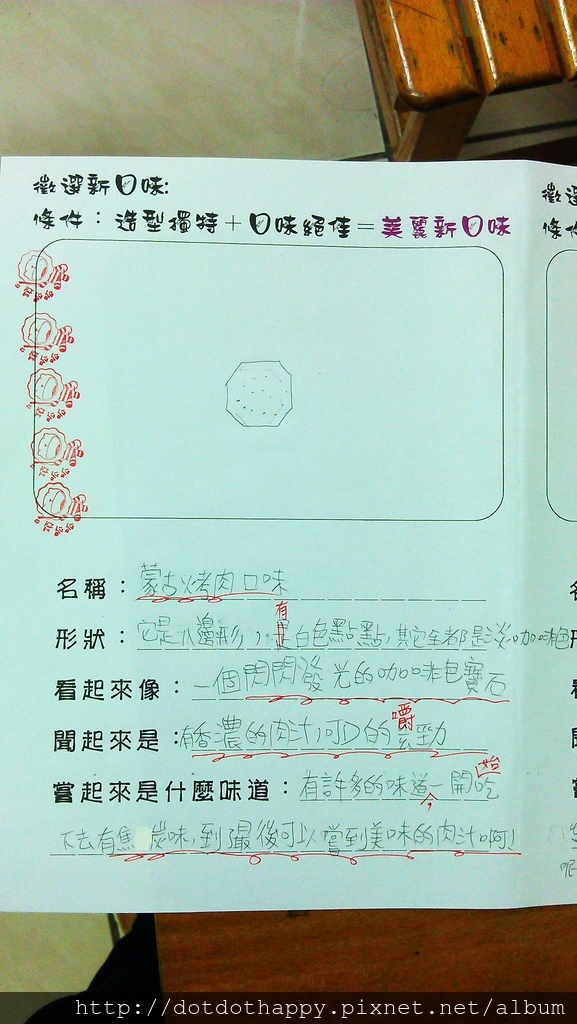 徵選新口味:
條件：造型獨特＋口味絕佳＝美麗新口味
名稱：蒙古烤肉口味
有
形狀：它是八邊形,,是白色點點,其它全都是淡咖啡色
看起來像：一個閃閃發光的咖啡色寶石
嚼
聞起來是：有香濃的肉汁,可口的 勁
始
嘗起來是什麼味道：有許多的味道一開吃
下去有焦炭味,到最後可以嚐到美味的肉汁啊!
http://dotdothappy.pixnet.net/album